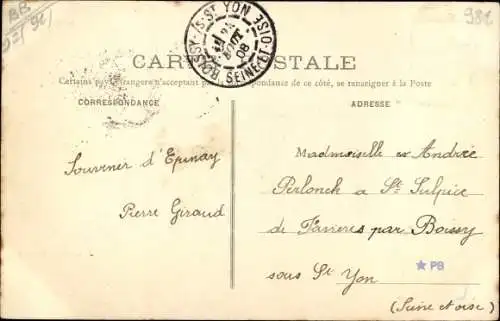 BB
981
BOISSY-S-ST YON
24
AOUT
08
SEINE-ET-OISE
CARTE POSTALE
Certains pays étrangers n'acceptant pas la correspondance de ce côté, se renseigner à la Poste
CORRESPONDANCE
ADRESSE
Souvenir d'Epinay
Pierre Giraud
Mademoiselle Andrée
Perlonck a St Sulpice
de Favieres par Boissy
sous St Yon
★ PB
(Seine et oise)